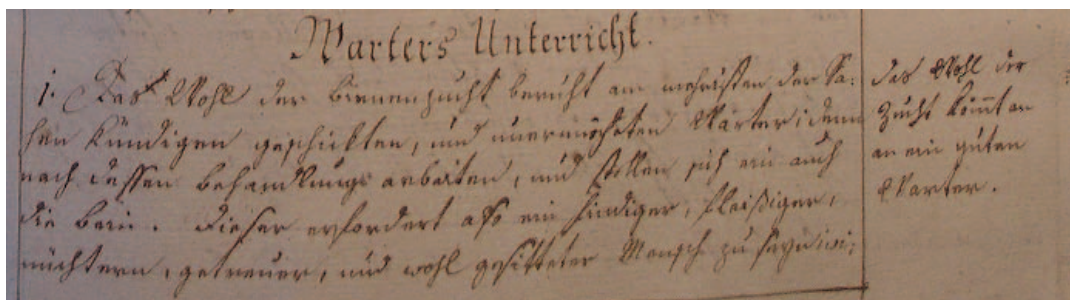 Warters Unterricht.
1. Das Wohl der bienenzucht beruht am mehristen der Sa:
chen kündigen geschickten, und unermüdeten Warter; denn
nach dessen behandlungs arbeiten, und stellen sich ein auch
die bein. Dieser erfordert also ein fündiger, fleißiger,
nüchtern, getreuer, und wohl gesitteter Mensch zu seyn
das Wohl der
Zucht kömt an
an ein guten
Warter.